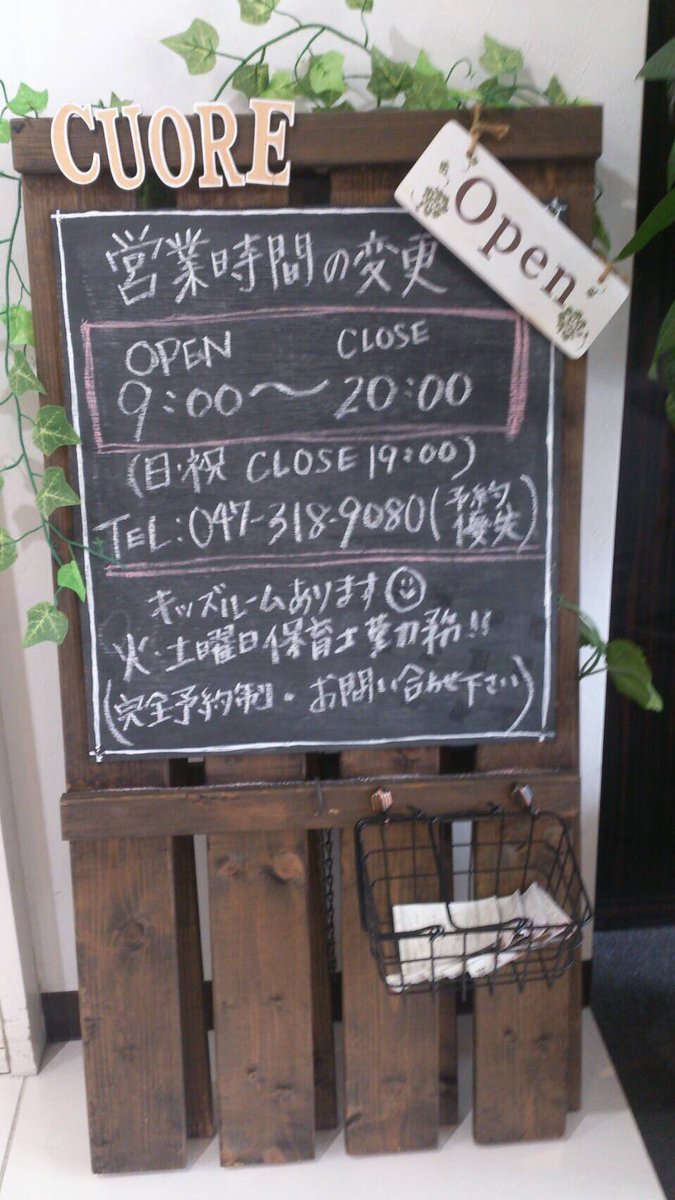 CUORE
Open
営業時間の変更
OPEN CLOSE
9:00〜20:00
(日・祝 CLOSE 19:00)
TEL:047-318-9080(予約優先)
キッズルームあります
火・土曜日保育士勤務!!
(完全予約制・お問い合わせ下さい)